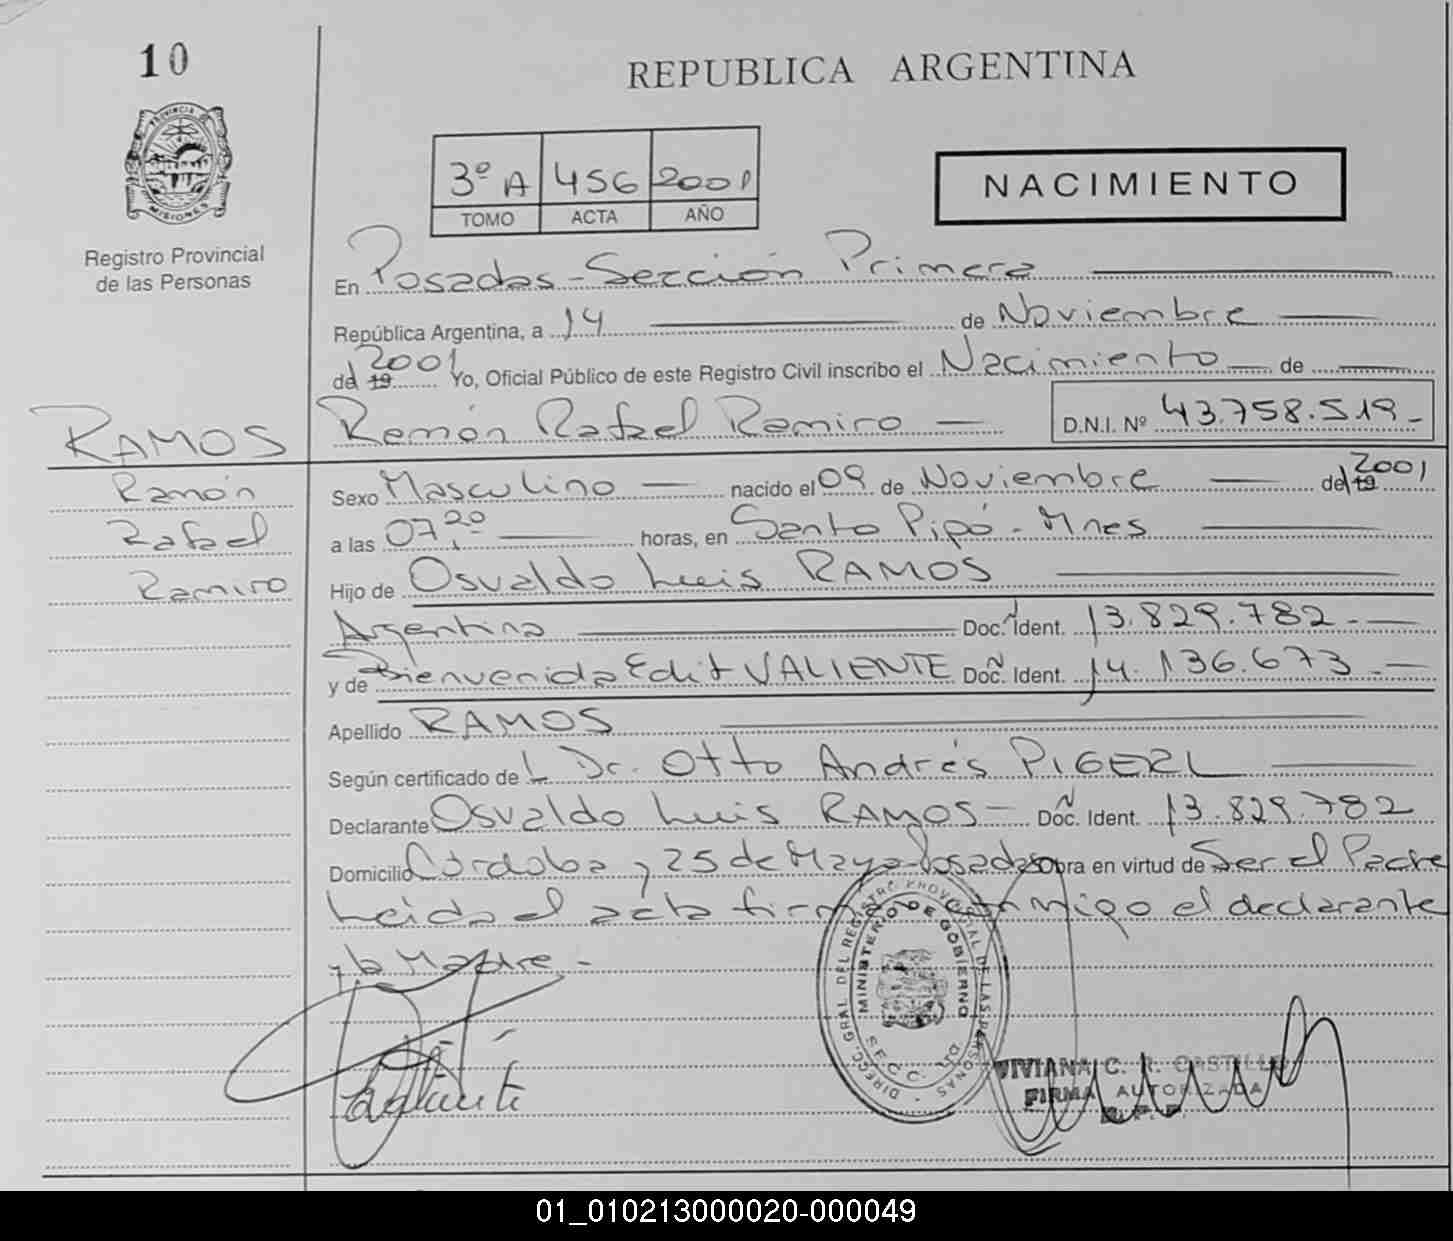 10
REPUBLICA ARGENTINA
PROVINCIA DE
MISIONES
Registro Provincial
de las Personas
3º A 456 2001
TOMO ACTA AÑO
NACIMIENTO
En Posadas - Sección Primera
República Argentina, a 14 de Noviembre
del 2001 19 Yo, Oficial Público de este Registro Civil inscribo el Nacimiento de
RAMOS Ramón Rafael Ramiro D.N.I. Nº 43.758.519.-
Ramón
Rafael
Ramiro
Sexo Masculino nacido el 09 de Noviembre del 2001 19
a las 07,20 horas, en Santo Pipó - Mnes
Hijo de Osvaldo Luis RAMOS
Argentina Doc. Ident. 13.829.782.-
y de Bienvenida Edit VALIENTE Doc. Ident. 14.136.673.-
Apellido RAMOS
Según certificado de L Dr. Otto Andrés PIGERL
Declarante Osvaldo Luis RAMOS - Doc. Ident. 13.829.782
Domicilio Córdoba y 25 de Mayo - Posadas obra en virtud de Ser el Padre
Leida el acta firma conmigo el declarante
y la Madre.-
DIRECC. GRAL. DEL REGISTRO PROVINCIAL DE LAS PERSONAS
MINISTERIO DE GOBIERNO
VIVIANA C. R. CASTILLO
FIRMA AUTORIZADA
01_010213000020-000049